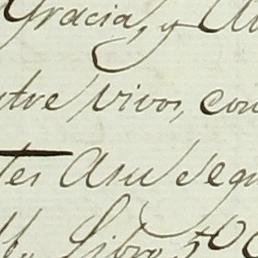 Gracia, y
ntre vivos, con
tes asu segu
Libro 5º